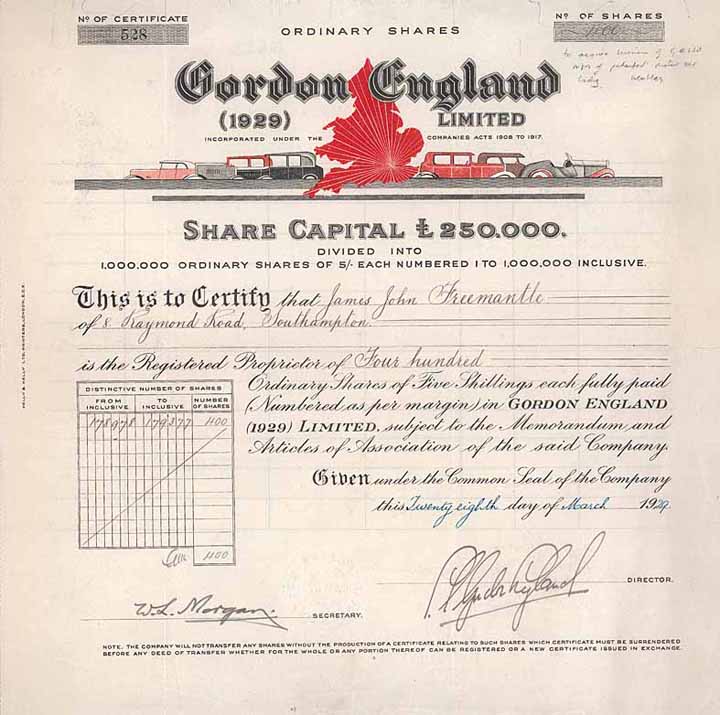 No OF CERTIFICATE
528
ORDINARY SHARES
No OF SHARES
400
Gordon England
(1929) LIMITED
INCORPORATED UNDER THE COMPANIES ACTS 1908 TO 1917.
SHARE CAPITAL £250.000.
DIVIDED INTO
1,000,000 ORDINARY SHARES OF 5/- EACH NUMBERED 1 TO 1,000,000 INCLUSIVE.
This is to Certify that James John Freemantle
of 8. Raymond Road, Southampton.
is the Registered Proprietor of Four hundred
Ordinary Shares of Five Shillings each fully paid
(Numbered as per margin) in GORDON ENGLAND
(1929) LIMITED, subject to the Memorandum and
Articles of Association of the said Company.
DISTINCTIVE NUMBER OF SHARES
FROM INCLUSIVE TO INCLUSIVE NUMBER OF SHARES
178978 179377 400
400
Given under the Common Seal of the Company
this Twenty eighth day of March 1929.
DIRECTOR.
W.L. Morgan. SECRETARY.
NOTE. THE COMPANY WILL NOT TRANSFER ANY SHARES WITHOUT THE PRODUCTION OF A CERTIFICATE RELATING TO SUCH SHARES WHICH CERTIFICATE MUST BE SURRENDERED
BEFORE ANY DEED OF TRANSFER WHETHER FOR THE WHOLE OR ANY PORTION THEREOF CAN BE REGISTERED OR A NEW CERTIFICATE ISSUED IN EXCHANGE.